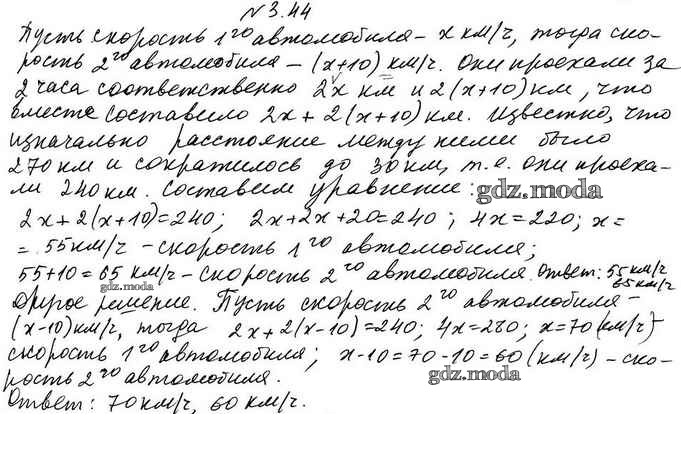 №3.44
Пусть скорость 1го автомобиля – х км/ч, тогда ско-
рость 2го автомобиля – (х+10) км/ч. Они проехали за
2 часа соответственно 2х км и 2(х+10) км, что
вместе составило 2х + 2(х+10) км. Известно, что
изначально расстояние между ними было
270 км и сократилось до 30 км, т.е. они проеха-
ли 240 км. Составим уравнение:
gdz.moda
2х+2(х+10)=240; 2х+2х+20=240; 4х=220; х=
= 55 км/ч – скорость 1го автомобиля;
55+10=65 км/ч – скорость 2го автомобиля. Ответ: 55 км/ч
65 км/ч
gdz.moda
gdz.moda
Другое решение. Пусть скорость 2го автомобиля –
(х-10) км/ч, тогда 2х+2(х-10)=240; 4х=280; х=70 (км/ч) –
скорость 1го автомобиля; х-10=70-10=60 (км/ч) – ско-
рость 2го автомобиля.
gdz.moda
Ответ: 70 км/ч, 60 км/ч.